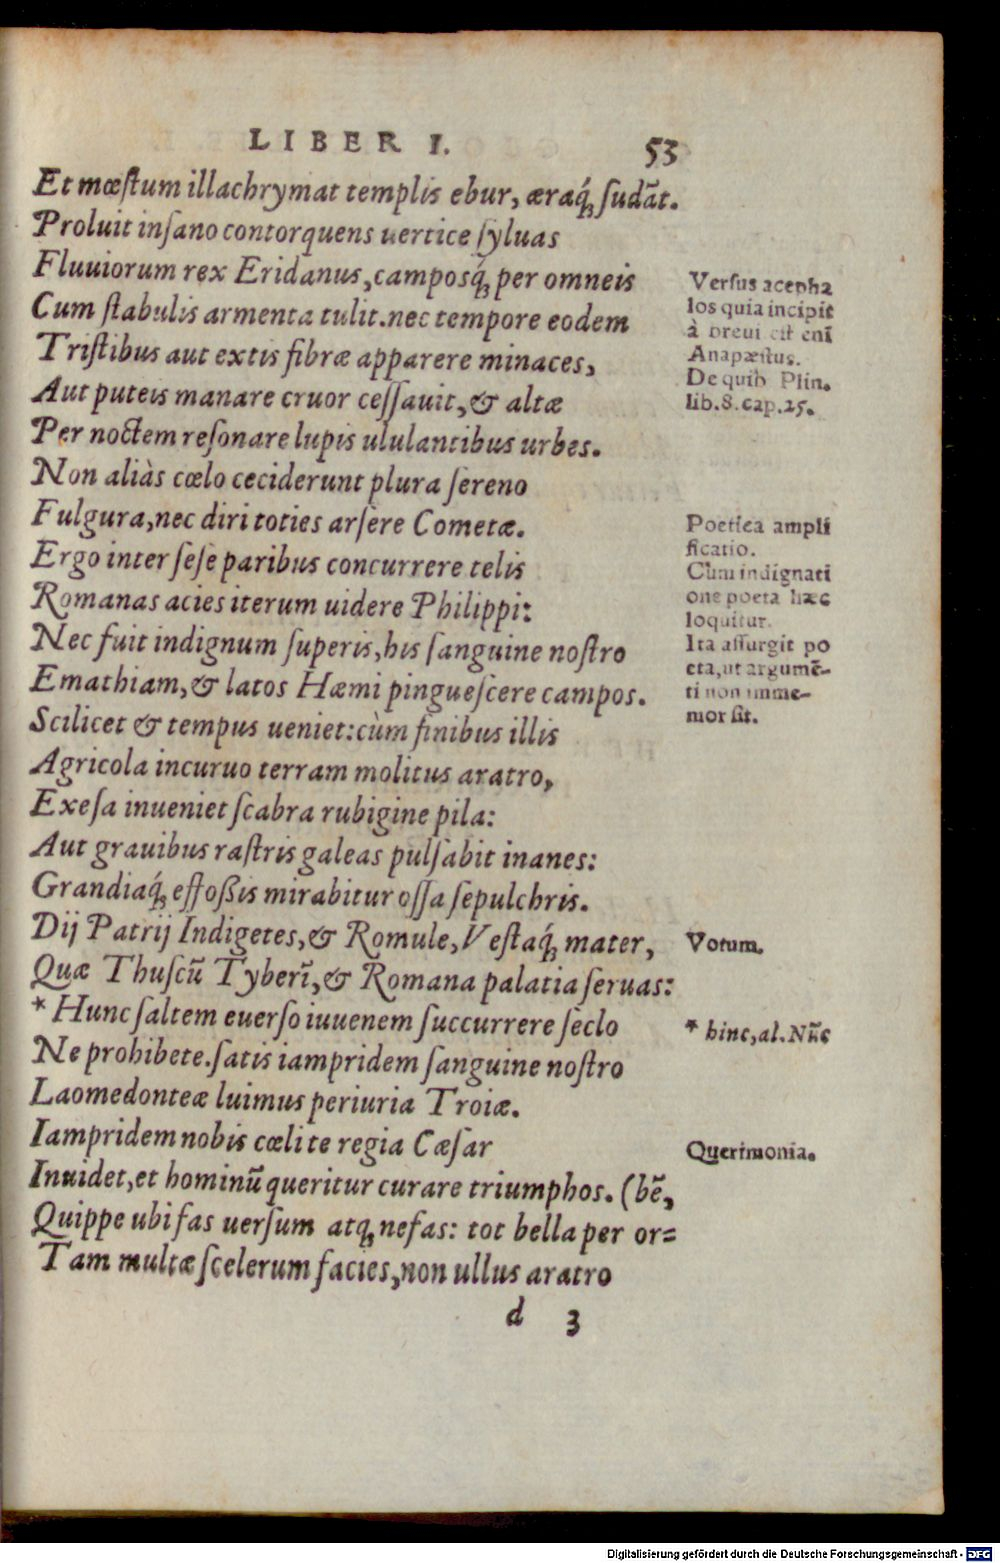 LIBER I. 53
Et mœſtum illachrymat templis ebur, æraq́ꝫ ſudãt.
Proluit inſano contorquens uertice ſyluas
Fluuiorum rex Eridanus, camposq́ꝫ per omneis
Cum ſtabulis armenta tulit. nec tempore eodem
Triſtibus aut extis fibræ apparere minaces,
Aut puteis manare cruor ceſſauit, & altæ
Per noctem reſonare lupis ululantibus urbes.
Non aliàs cœlo ceciderunt plura ſereno
Fulgura, nec diri toties arſère Cometæ.
Ergo inter ſeſe paribus concurrere telis
Romanas acies iterum uidere Philippi:
Nec fuit indignum ſuperis, his ſanguine noſtro
Emathiam, & latos Hæmi pingueſcere campos.
Scilicet & tempus ueniet: cùm finibus illis
Agricola incuruo terram molitus aratro,
Exeſa inueniet ſcabra rubigine pila:
Aut grauibus raſtris galeas pulſabit inanes:
Grandiaq́ꝫ effoßis mirabitur oſſa ſepulchris.
Dij Patrij Indigetes, & Romule, Veſtaq́ꝫ mater,
Quæ Thuſcũ Tyberĩ, & Romana palatia ſeruas:
* Hunc ſaltem euerſo iuuenem ſuccurrere ſeclo
Ne prohibete. ſatis iampridem ſanguine noſtro
Laomedonteæ luimus periuria Troiæ.
Iampridem nobis cœli te regia Cæſar
Inuidet, et hominũ queritur curare triumphos. (bẽ,
Quippe ubi fas uerſum atqꝫ nefas: tot bella per or=
Tam multæ ſcelerum facies, non ullus aratro
d 3
Verſus acepha
los quia incipit
à breui eſt enĩ
Anapæſtus.
De quib Plin.
lib.8.cap.25.
Poetica ampli
ficatio.
Cum indignati
one poeta hæc
loquitur.
Ita aſſurgit po
eta, ut argumẽ-
ti non imme-
mor ſit.
Votum.
* hinc, al. Nũc
Querimonia.
Digitalisierung gefördert durch die Deutsche Forschungsgemeinschaft - DFG